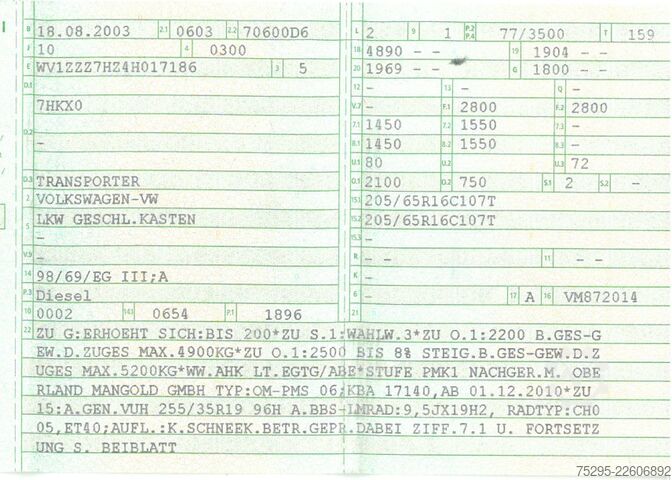 B 18.08.2003 2.1 0603 2.2 70600D6 L 2 9 1 P.2 P.4 77/3500 T 159
J 10 4 0300 18 4890 - - 19 1904 - -
E WV1ZZZ7HZ4H017186 3 5 20 1969 - - G 1800 - -
D.1 12 - 13 - Q -
7HKX0 V.7 - F.1 2800 F.2 2800
D.2 7.1 1450 7.2 1550 7.3 -
- 8.1 1450 8.2 1550 8.3 -
U.1 80 U.2 U.3 72
D.3 TRANSPORTER O.1 2100 O.2 750 S.1 2 S.2 -
2 VOLKSWAGEN-VW 15.1 205/65R16C107T
5 LKW GESCHL.KASTEN 15.2 205/65R16C107T
- 15.3 -
V.9 - R - - 11 - -
14 98/69/EG III;A K
P.3 Diesel 6 - 17 A 16 VM872014
10 0002 14.1 0654 P.1 1896 21
22 ZU G:ERHOEHT SICH:BIS 200*ZU S.1:WAHLW.3*ZU O.1:2200 B.GES-G
EW.D.ZUGES MAX.4900KG*ZU O.1:2500 BIS 8% STEIG.B.GES-GEW.D.Z
UGES MAX.5200KG*WW.AHK LT.EGTG/ABE*STUFE PMK1 NACHGER.M. OBE
RLAND MANGOLD GMBH TYP:OM-PMS 06;KBA 17140,AB 01.12.2010*ZU
15:A.GEN.VUH 255/35R19 96H A.BBS-LMRAD:9,5JX19H2, RADTYP:CH0
05,ET40;AUFL.:K.SCHNEEK.BETR.GEPR.DABEI ZIFF.7.1 U. FORTSETZ
UNG S. BEIBLATT
75295-22606892